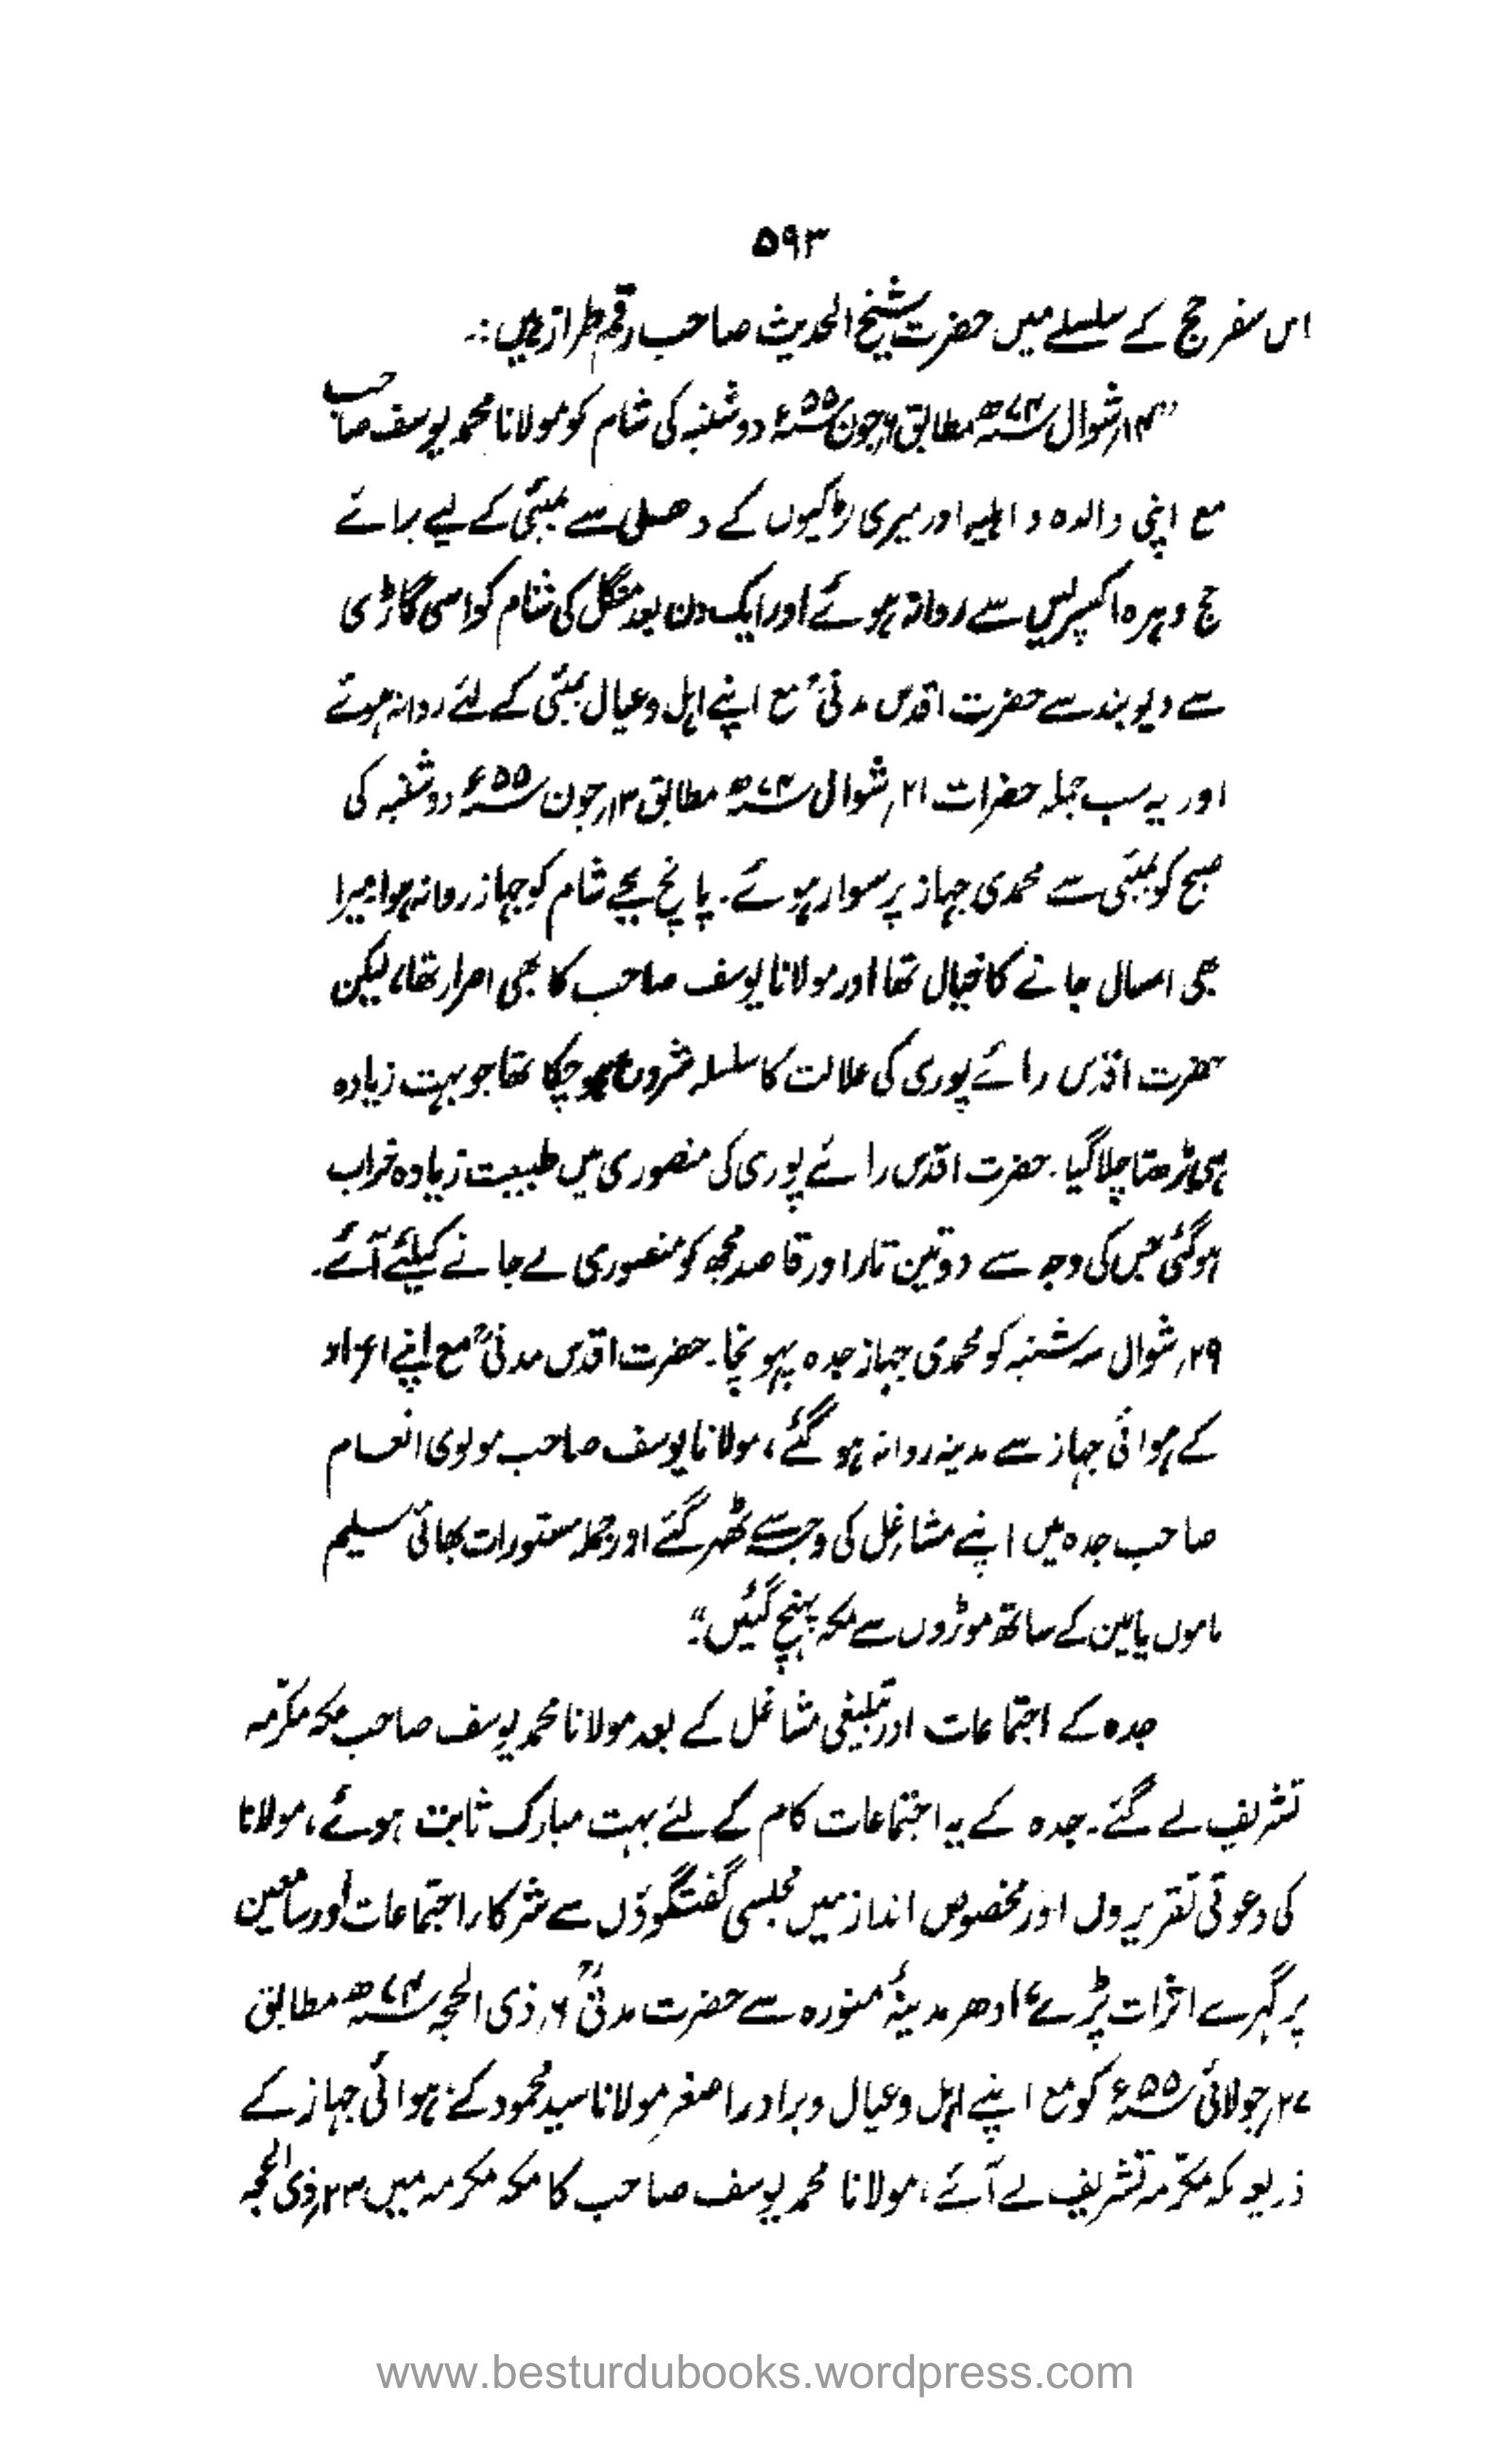 ۵۹۳
اس سفر حج کے سلسلے میں حضرت شیخ الحدیث صاحب رقم طراز ہیں :۔
"۱۴؍شوال ۷۴ھ مطابق ۶؍جون ۵۵ء دوشنبہ کی شام کو مولانا محمد یوسف صاحب
مع اپنی والدہ و اہلیہ اور میری لڑکیوں کے دھلی سے بمبئی کے لیے برائے
حج دہرہ اکسپریس سے روانہ ہوئے اور ایک دن بعد منگل کی شام کو اسی گاڑی
سے دیوبند سے حضرت اقدس مدنیؒ مع اپنے اہل وعیال بمبئی کے لئے روانہ ہوئے
اور یہ سب جملہ حضرات ۲۱؍شوال ۷۴ھ مطابق ۱۳؍جون ۵۵ء دوشنبہ کی
صبح کو بمبئی سے محمدی جہاز پر سوار ہوئے۔ پانچ بجے شام کو جہاز روانہ ہوا، میرا
بھی امسال جانے کا خیال تھا اور مولانا یوسف صاحب کا بھی اصرار تھا، لیکن
حضرت اقدس رائے پوری کی علالت کا سلسلہ شروع ہوچکا تھا جو بہت زیادہ
ہی بڑھتا چلا گیا۔ حضرت اقدس رائے پوری کی منصوری میں طبیعت زیادہ خراب
ہوگئی جس کی وجہ سے دو تین تار اور قاصد مجھ کو منصوری لے جانے کیلئے آئے۔
۲۹؍شوال سہ شنبہ کو محمدی جہاز جدہ پہونچا۔ حضرت اقدس مدنیؒ مع اپنے اعزاء
کے ہوائی جہاز سے مدینہ روانہ ہو گئے، مولانا یوسف صاحب مولوی انعام
صاحب جدہ میں اپنے مشاغل کی وجہ سے ٹھہر گئے اور جملہ مستورات بھائی سلیم
ماموں یامین کے ساتھ موٹروں سے مکہ پہنچ گئیں۔"
جدہ کے اجتماعات اور تبلیغی مشاغل کے بعد مولانا محمد یوسف صاحب مکہ مکرّمہ
تشریف لے گئے۔ جدہ کے یہ اجتماعات کام کے لئے بہت مبارک ثابت ہوئے، مولانا
کی دعوتی تقریروں اور مخصوص انداز میں مجلسی گفتگوؤں سے شرکاء اجتماعات اور سامعین
پر گہرے اثرات پڑے، ادھر مدینۂ منورہ سے حضرت مدنیؒ ۶؍ذی الحجہ ۷۴ھ مطابق
۲۷؍جولائی ۵۵ء کو مع اپنے اہل وعیال و برادر اصغر مولانا سید محمود کے ہوائی جہاز کے
ذریعہ مکہ مکرّمہ تشریف لے آئے، مولانا محمد یوسف صاحب کا مکہ مکرمہ میں ۲۳؍ذی الحجہ
www.besturdubooks.wordpress.com